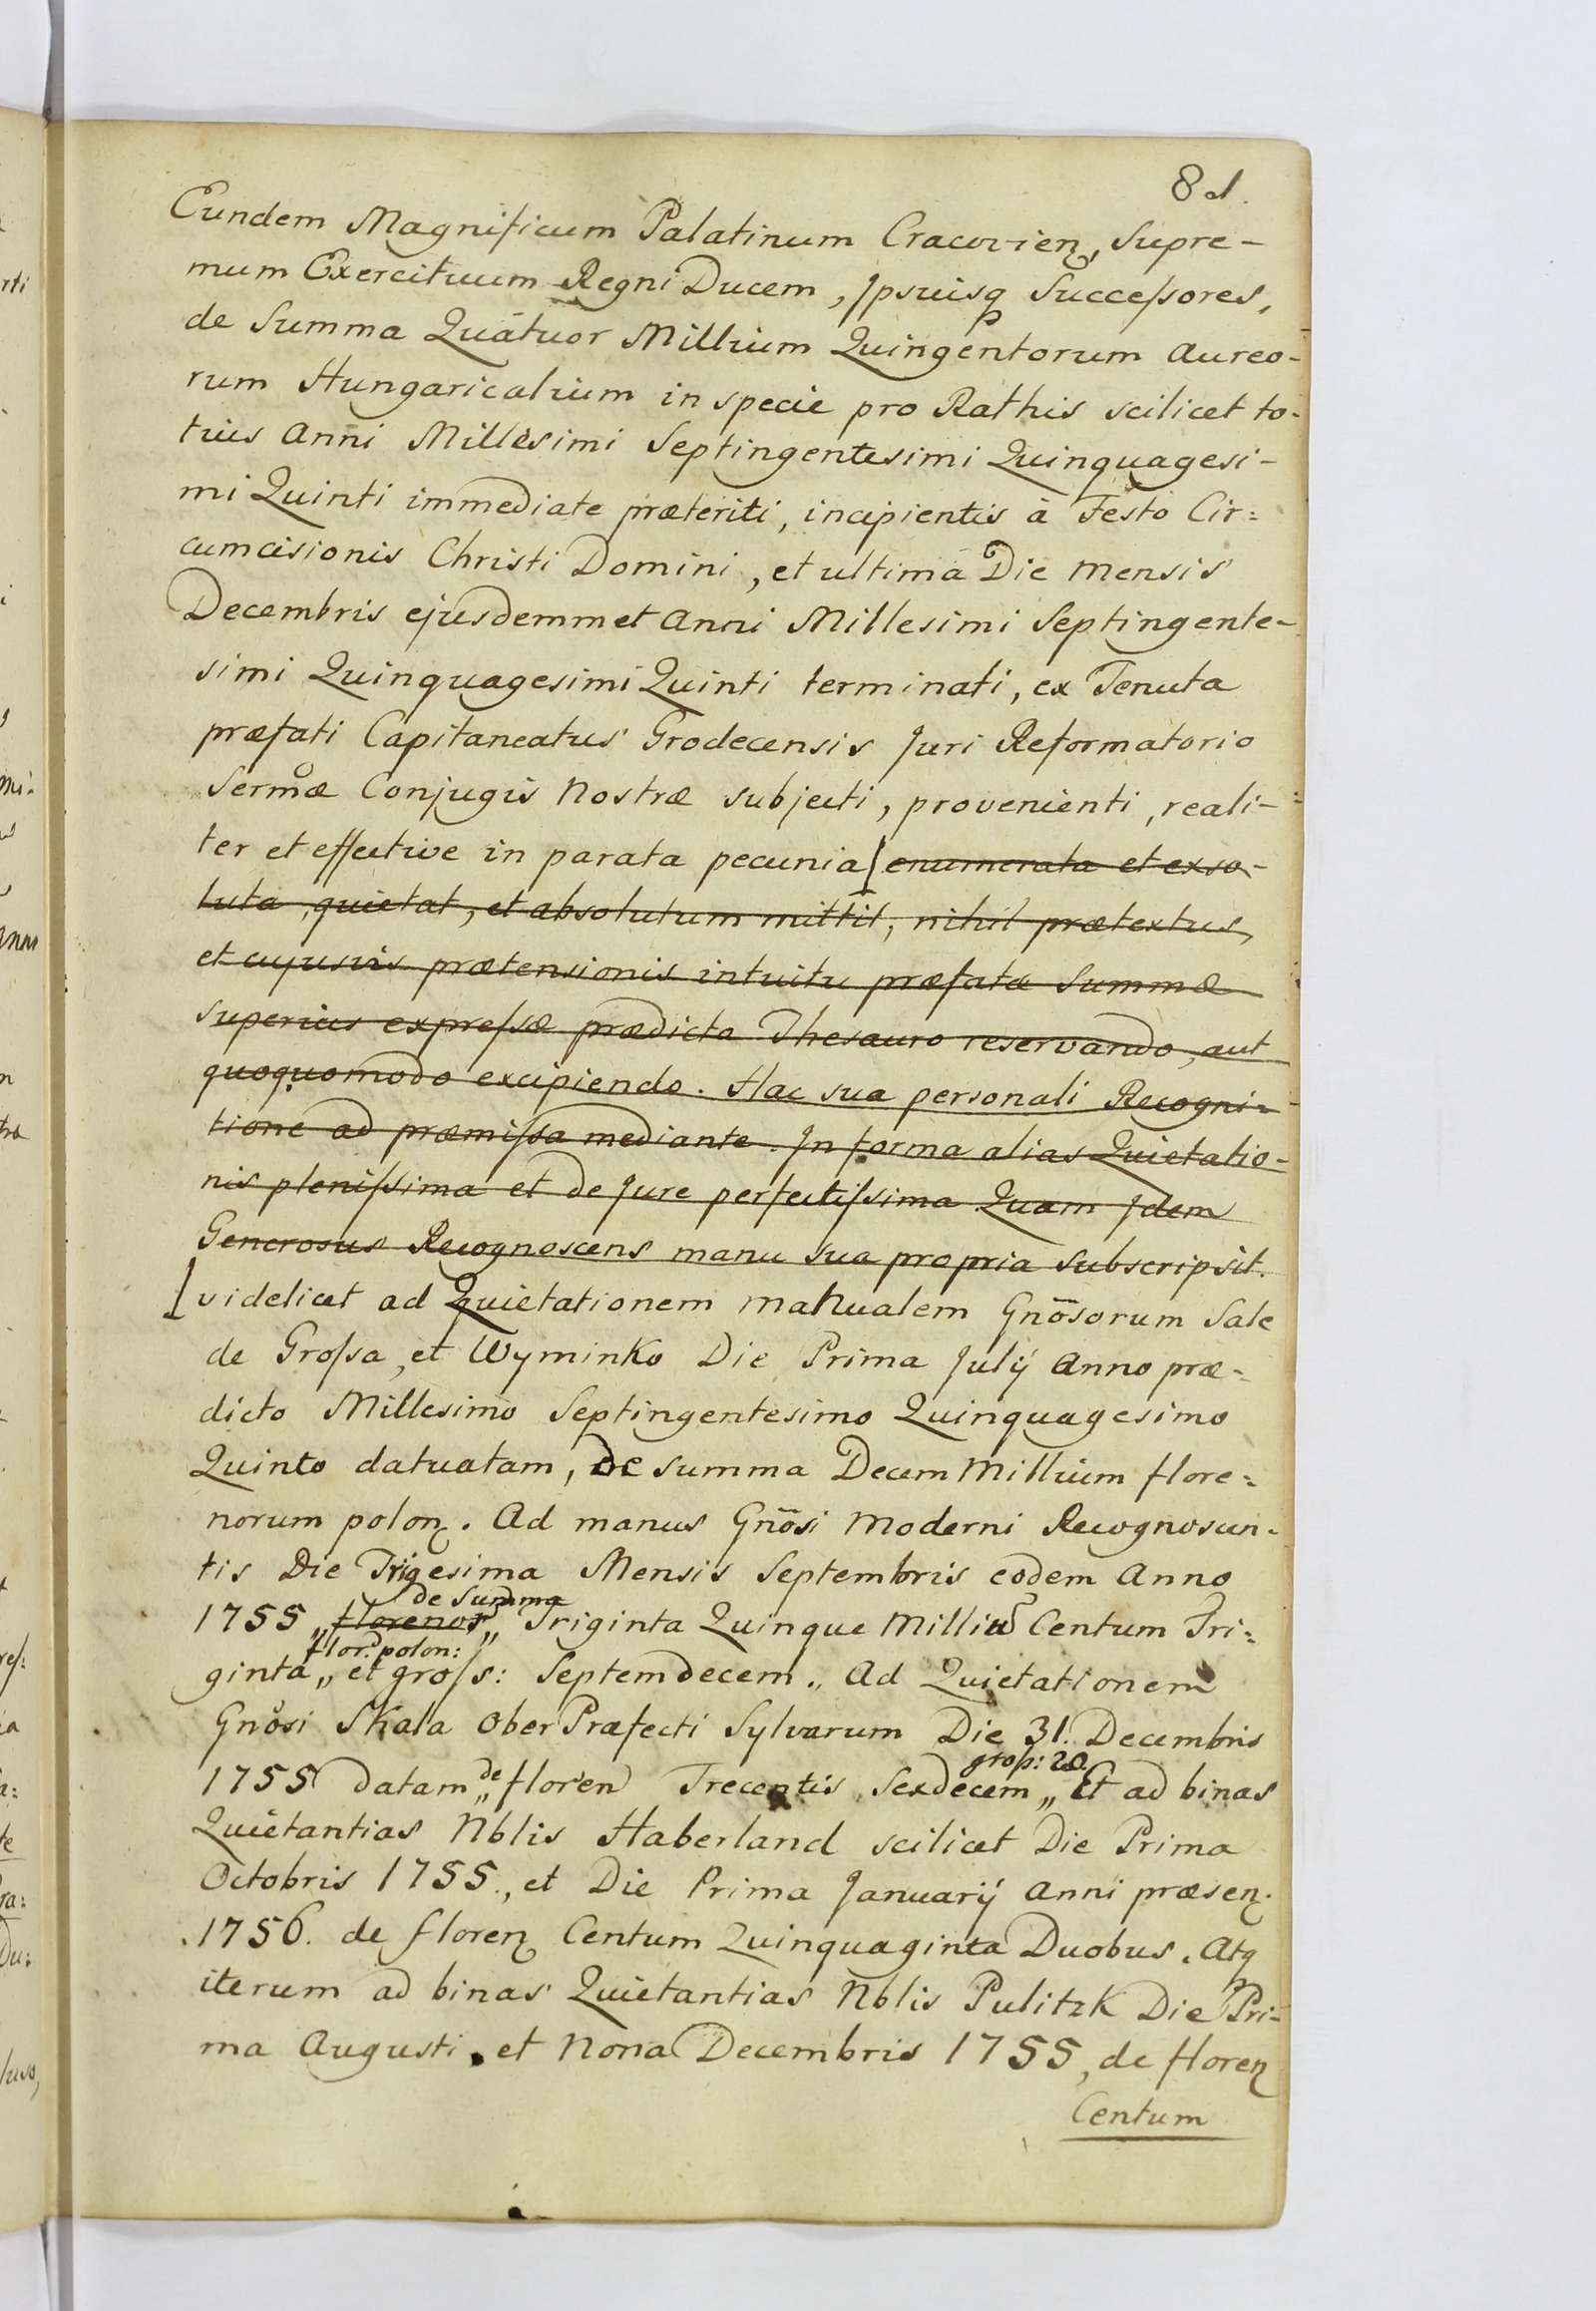 81.
Eundem Magnificum Palatinum Cracovien, Supre-
mum Exercituum Regni Ducem, Ipsuisq Successores,
de Summa Quatuor Millium Quingentorum Aureo-
rum Hungaricalium in specie pro Rathis scilicet to-
tius Anni Millesimi Septingentesimi Quinquagesi-
mi Quinti immediate præteriti, incipientis à Festo Cir=
cumcisionis Christi Domini, et ultima Die Mensis
Decembris ejusdemmet Anni Millesimi Septingente-
simi Quinquagesimi Quinti terminati, ex Tenuta
præfati Capitaneatus Grodecensis Juri Reformatorio
Sermæ Conjugis Nostræ subjecti, provenienti, reali-
ter et effective in parata pecunia enumerata et exso-
luta, quietat, et absolutum mittit, nihil prætextus,
et cujusvis prætensionis intuitu præfatæ Summæ
superius expressæ prædicta Thesauro reservando, aut
quoquomodo excipiendo. Hac sua personali Recogni-
tione ad præmissa mediante. In forma alias Quietatio-
nis plenissima et de Jure perfectissima Quam Idem
Generosus Recognoscens manu sua propria subscripsit.
videlicet ad Quietationem manualem Gnosorum Sale
de Grossa, et Wyminko Die Prima Julÿ Anno præ-
dicto Millesimo Septingentesimo Quinquagesimo
Quinto datuatam, de summa Decem Millium flore=
norum polon. Ad manus Gnosi Moderni Recognoscen-
tis Die Trigesima Mensis Septembris eodem Anno
de Summa
1755 „ florenor „ Triginta Quinque Milliu Centum Tri=
flor. polon:
ginta „ et gross: Septemdecem „ Ad Quietationem
Gnosi Skala Ober Præfecti Sylvarum Die 31. Decembris
gross: 20.
1755 datam „ de floren Trecentis Sexdecem „ Et ad binas
Quietantias Nblis Haberland scilicet Die Prima
Octobris 1755., et Die Prima Januarÿ Anni præsen.
1756. de floren Centum Quinquaginta Duobus. Atq
iterum ad binas Quietantias Nblis Pulitzk Die Pri-
ma Augusti, et Nona Decembris 1755, de floren
Centum